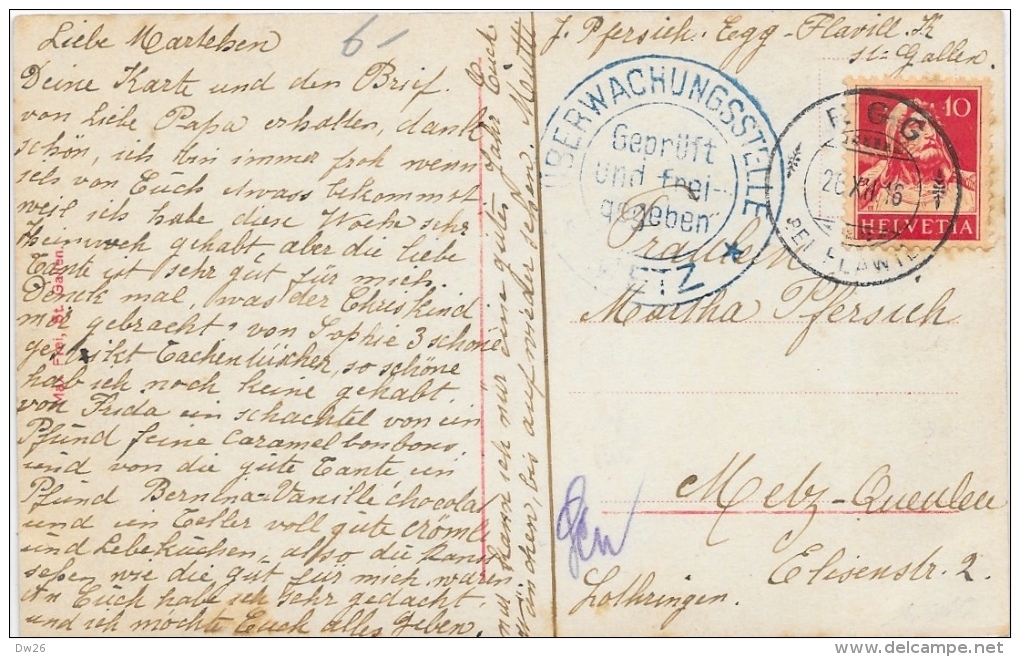 Liebe Martchen
Deine Karte und den Brief
von Liebe Papa erhalten, danke
schön, ich bin immer froh wenn
ich von Euch etwas bekommst
weil ich habe diese Woche sehr
Heimweh gehabt aber die liebe
Tante ist sehr güt für mich.
Denck mal, was der Chriskind
mir gebracht, von Sophie 3 schöne
gestikt Tachentücher, so schöne
hab ich noch keine gehabt.
von Frida ein schachtel von ein
Pfünd feine Caramelbonbons
und von die güte Tante ein
Pfünd Bernina-Vanille, chocolat
und ein Teller voll güte Crömli
und Lebeküchen, also die
wie die güt für mich waren
An Euch habe ich sehr gedacht,
und ich möchte Euch alles geben.
nus kann ich nür eine gütes Jahr Euch
wünchen, bis auf wieder sehen. Mettti
Max Frei, St. Gallen.
6-
J. Pfersich. Egg-Flavill. K
St-Gallen.
ÜBERWACHUNGSSTELLE
Geprüft
und frei-
gegeben
METZ
EGG
26 XII 16
BEI FLAWIL
10
HELVETIA
Fraulein
Martha Pfersich
Metz-Queuleu
Elisenstr. 2.
Lothringen.
Dw26
delcampe.net